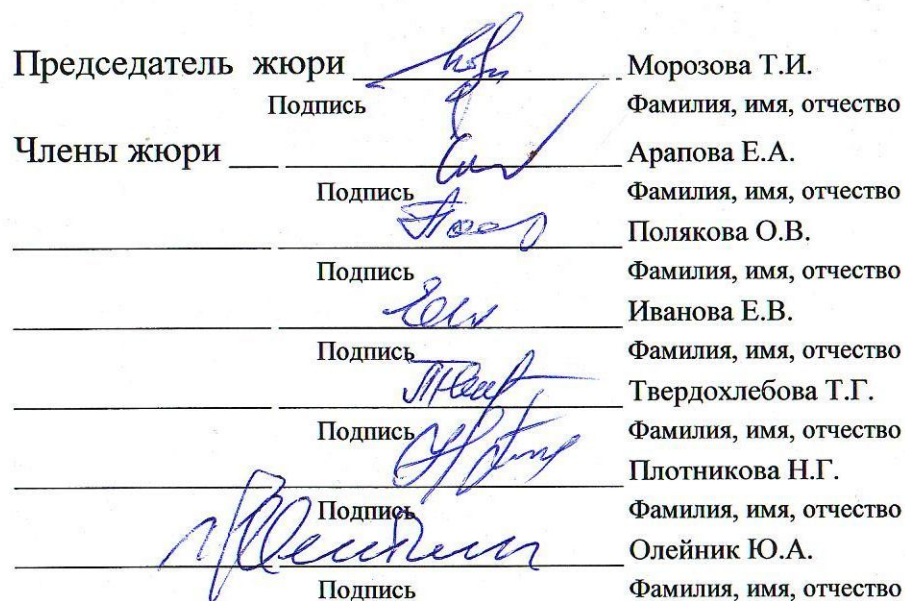 Председатель жюри Морозова Т.И.
Подпись Фамилия, имя, отчество
Члены жюри Арапова Е.А.
Подпись Фамилия, имя, отчество
Полякова О.В.
Подпись Фамилия, имя, отчество
Иванова Е.В.
Подпись Фамилия, имя, отчество
Твердохлебова Т.Г.
Подпись Фамилия, имя, отчество
Плотникова Н.Г.
Подпись Фамилия, имя, отчество
Олейник Ю.А.
Подпись Фамилия, имя, отчество